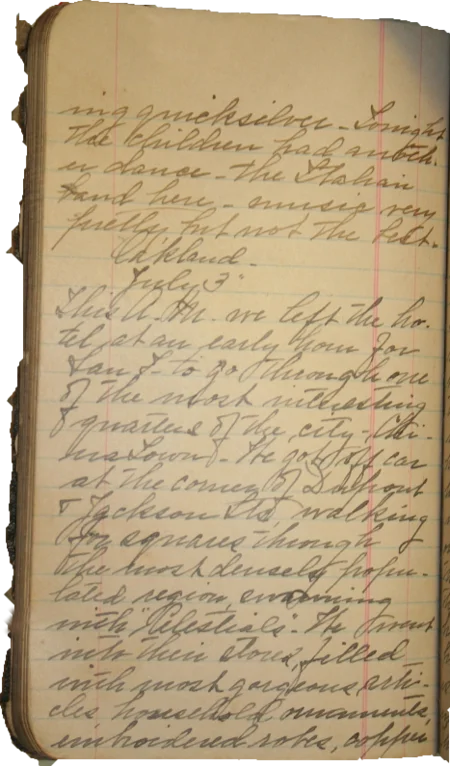 ing quicksilver - Tonight
the children had anoth-
er dance - the Italian
band here - music very
pretty but not the best.
Oakland -
July 3"
This A.M. we left the ho-
tel at an early hour for
San F- to go through one
of the most interesting
quarters of the city, Chi-
na Town - We got off car
at the corner of Dupont
& Jackson Sts, walking
for squares through
the most densely popu-
lated region, swarming
with "Celestials". We went
into their stores, filled
with most gorgeous arti-
cles household ornaments,
embroidered robes, copper